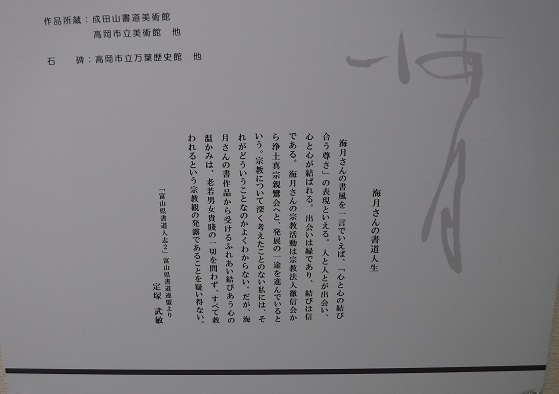 作品所蔵：成田山書道美術館
高岡市立美術館　他
石　碑：高岡市立万葉歴史館　他
海月
海月さんの書道人生
海月さんの書風を一言でいえば、「心と心の結び
合う尊さ」の表現といえる。人と人とが出会い、
心と心が結ばれる。出会いは縁であり、結びは信
である。海月さんの宗教活動は宗教法人徹信会か
ら浄土真宗親鸞会へと、発展の一途を進んでいると
いう。宗教について深く考えたことのない私には、そ
れがどういうことなのかよくわからない。だが、海
月さんの書作品から受けるふれあい結びあう心の
温かみは、老若男女貴賤の一切を問わず、すべて救
われるという宗教観の発露であることを疑い得ない。
「富山県書道人志2」富山県書道連盟より
定塚　武敏